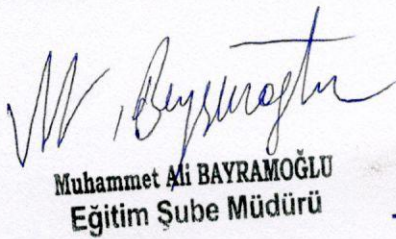 Muhammet Ali BAYRAMOĞLU
Eğitim Şube Müdürü